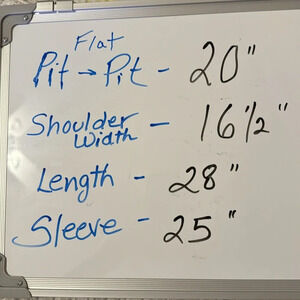 Flat
Pit → Pit - 20"
Shoulder Width - 16 1/2"
Length - 28"
Sleeve - 25"